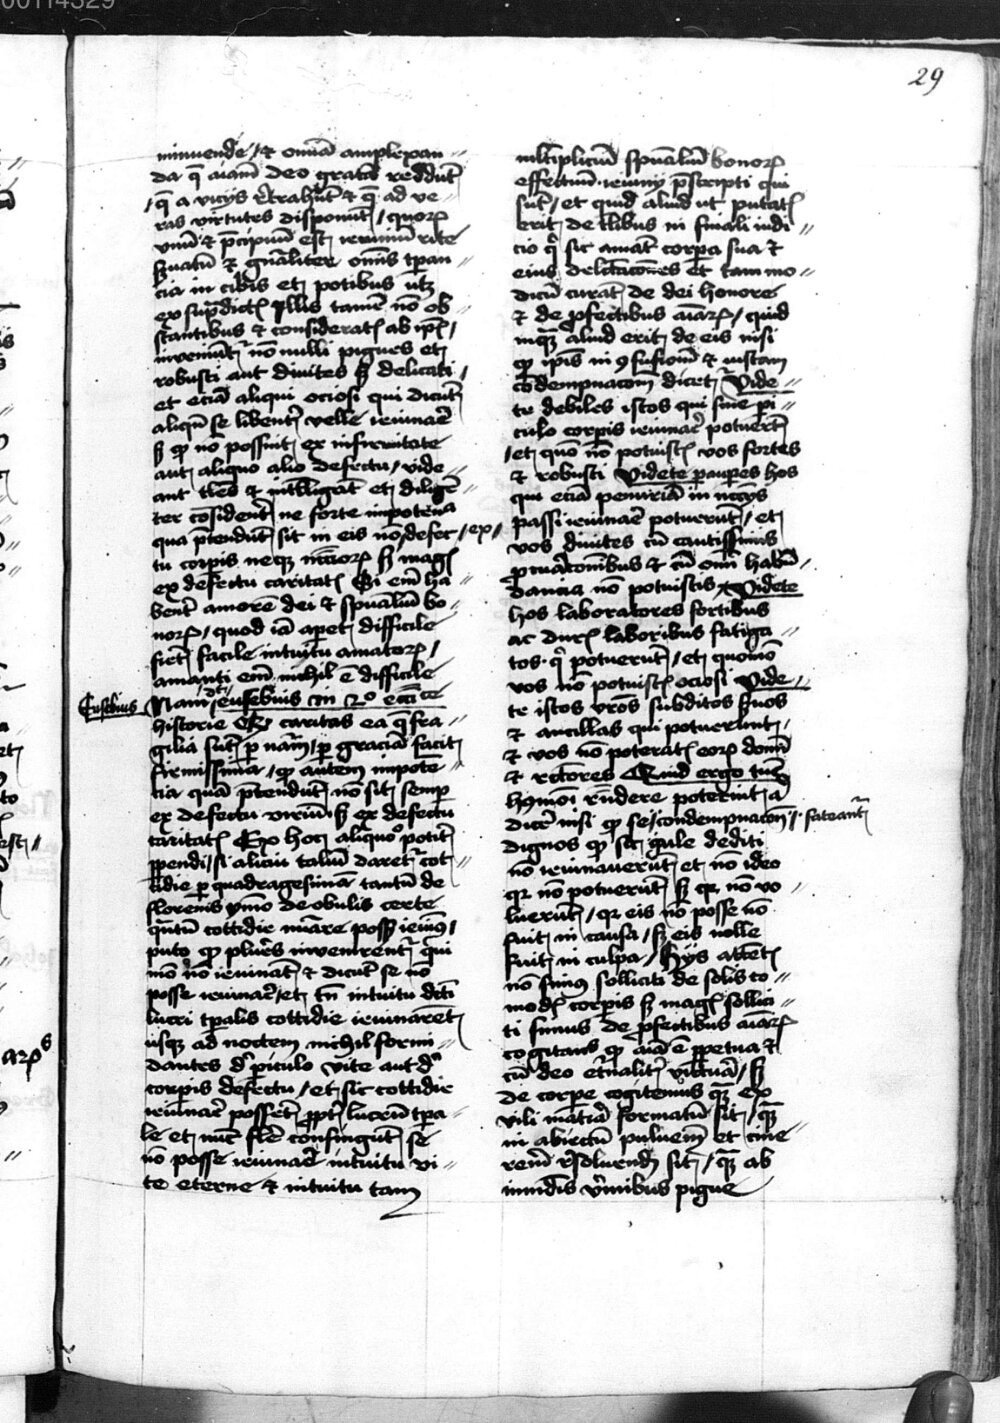 29
minuende / et omnia amplexan //
da que animam deo gratam reddunt
/ que a vicijs retrahunt et que ad ve //
ras virtutes disponunt / quorum
vnum et precipuum est ieiunium rite
seruatum et generaliter omnis tempan //
cia in cibis et potibus
ex supradictis Illis tamen non ob
stantibus et consideratis ab ipsis /
inveniuntur non nulli pigues et
robusti aut diuites sed delicati /
et eciam aliqui ociosi qui dicunt
aliqui se libenter velle ieiunare
sed quod non possint ex infirmitate
aut aliquo alio defectu / vide //
ant tales et intelligant et diligen
ter considerent ne forte impotencia
quam pretendunt sit in eis non / ex / defec /
tu corporis neque sed magis
ex defectu caritatis Si enim ha
berent amorem dei et spiritualium bo //
norum / quod iam apparet difficile
fieret facile intuitu amatorum /
amanti enim nichil est difficile
Eusebius
Nam dicit eusebius in 2o ecclesiastice
historie Quod caritas ea que fra //
gilia sunt per naturam / per graciam facit
firmissima / quod autem impoten //
cia quam pretendunt non sit semper
ex defectu virium sed ex defectu
caritatis Ex hoc aliquo potest
perpendi / si alicui talium daretur cot //
tidie per quadragesimam tantum de
florenis ymmo de obulis certe
quantum cottidie numerare posset ieiunus /
puto quod plures invenirentur qui
modo non ieiunant et dicunt se non
posse ieiunare / et tamen intuitu dicti
lucri temporalis cottidie ieiunarent
usque ad noctem nichil formi //
dantes de periculo vite aut de
corporis defectu / et sic cottidie
ieiunare possent propter lucrum tempora
le et nunc false confingunt se
non posse ieiunare intuitu vi //
te eterne et intuitu tam
multiplicium spiritualium bonorum
effectuum ieiunij prescripti qui
sunt / et quid aliud ut putatis
erit de talibus in finali iudi //
cio qui sic amant corpora sua et
eius delectaciones et tam mo //
dicum curant de dei honore
et de profectibus animarum / quid
inquam aliud erit de eis nisi
quod ipsis in confusionem et iustam
condempnacionem dicetur Vide //
te debiles istos qui sine peri //
culo corporis ieiunare potuerunt
/ et quomodo non potuistis vos fortes
et robusti Videte pauperes hos
qui eciam penuriam in necessarijs
passi ieiunare potuerunt / et
vos diuites cum cautissimis
preuacionibus et cum omni habun /
dancia non potuistis Videte
hos laboratores fortibus
ac duris laboribus fatiga //
tos qui potuerunt / et quomodo
vos non potuistis ociosi Vide //
te istos vestros subditos seruos
et ancillas qui potuerunt /
et vos non poteratis eorum domini
et rectores Quid ergo tunc
huiusmodi respondere poterint aut
dicere nisi quod se / condempnacione / fateantur
dignos quod sic gule dediti
non ieiunauerunt et non ideo
quia non potuerunt sed quia non vo /
luerunt / quia eis non posse non
fuit in causa / sed eis nolle
fuit in culpa / Hijs attentis
non simus solliciti de solis co //
modis corporis sed magis sollici //
ti simus de profectibus animarum
cogitans quod anima est perpetua et
cum deo eternaliter victura / sed
de corpore cogitemus quam ex
vili materia formatum sit / quam
in abiectum puluerem et cine
rem resoluendum sit / quam ab
inmundis vermibus pigue